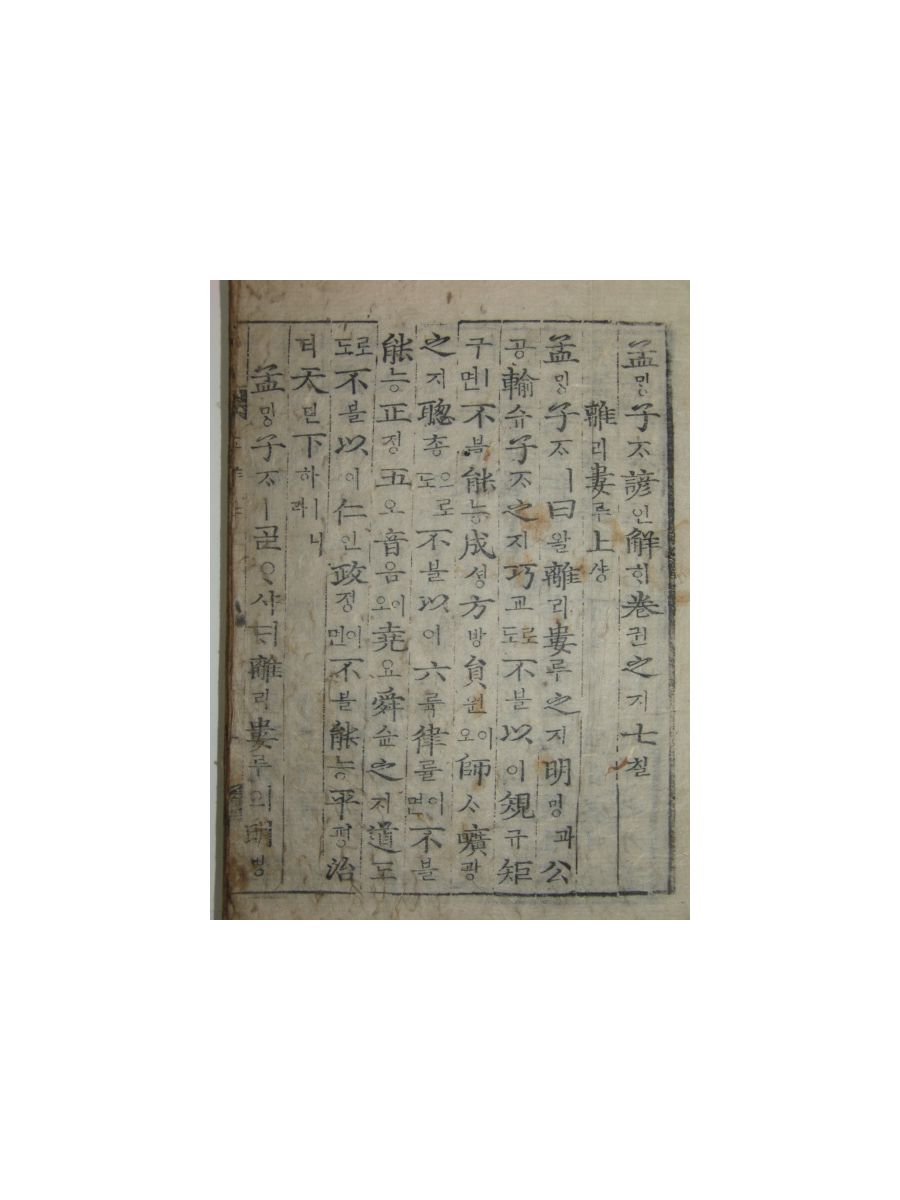 孟ᄆᆡᆼ子ᄌᆞ諺언解ᄒᆡ卷권之지七칠
離리婁루上샹
孟ᄆᆡᆼ子ᄌᆞㅣ曰왈離리婁루之지明명과公
공輸슈子ᄌᆞ之지巧교로도不불以이規규矩
구ㅣ면不블能능成셩方방員원이오師ᄉᆞ曠광
之지聰총으로도不블以이六륙律률이면不블
能능正졍五오音음이오堯요舜슌之지道도
로도不블以이仁인政졍이면不블能능平평治
티天텬下하ㅣ니라
孟ᄆᆡᆼ子ᄌᆞㅣᄀᆞᆯᄋᆞ샤ᄃᆡ離리婁루의明명